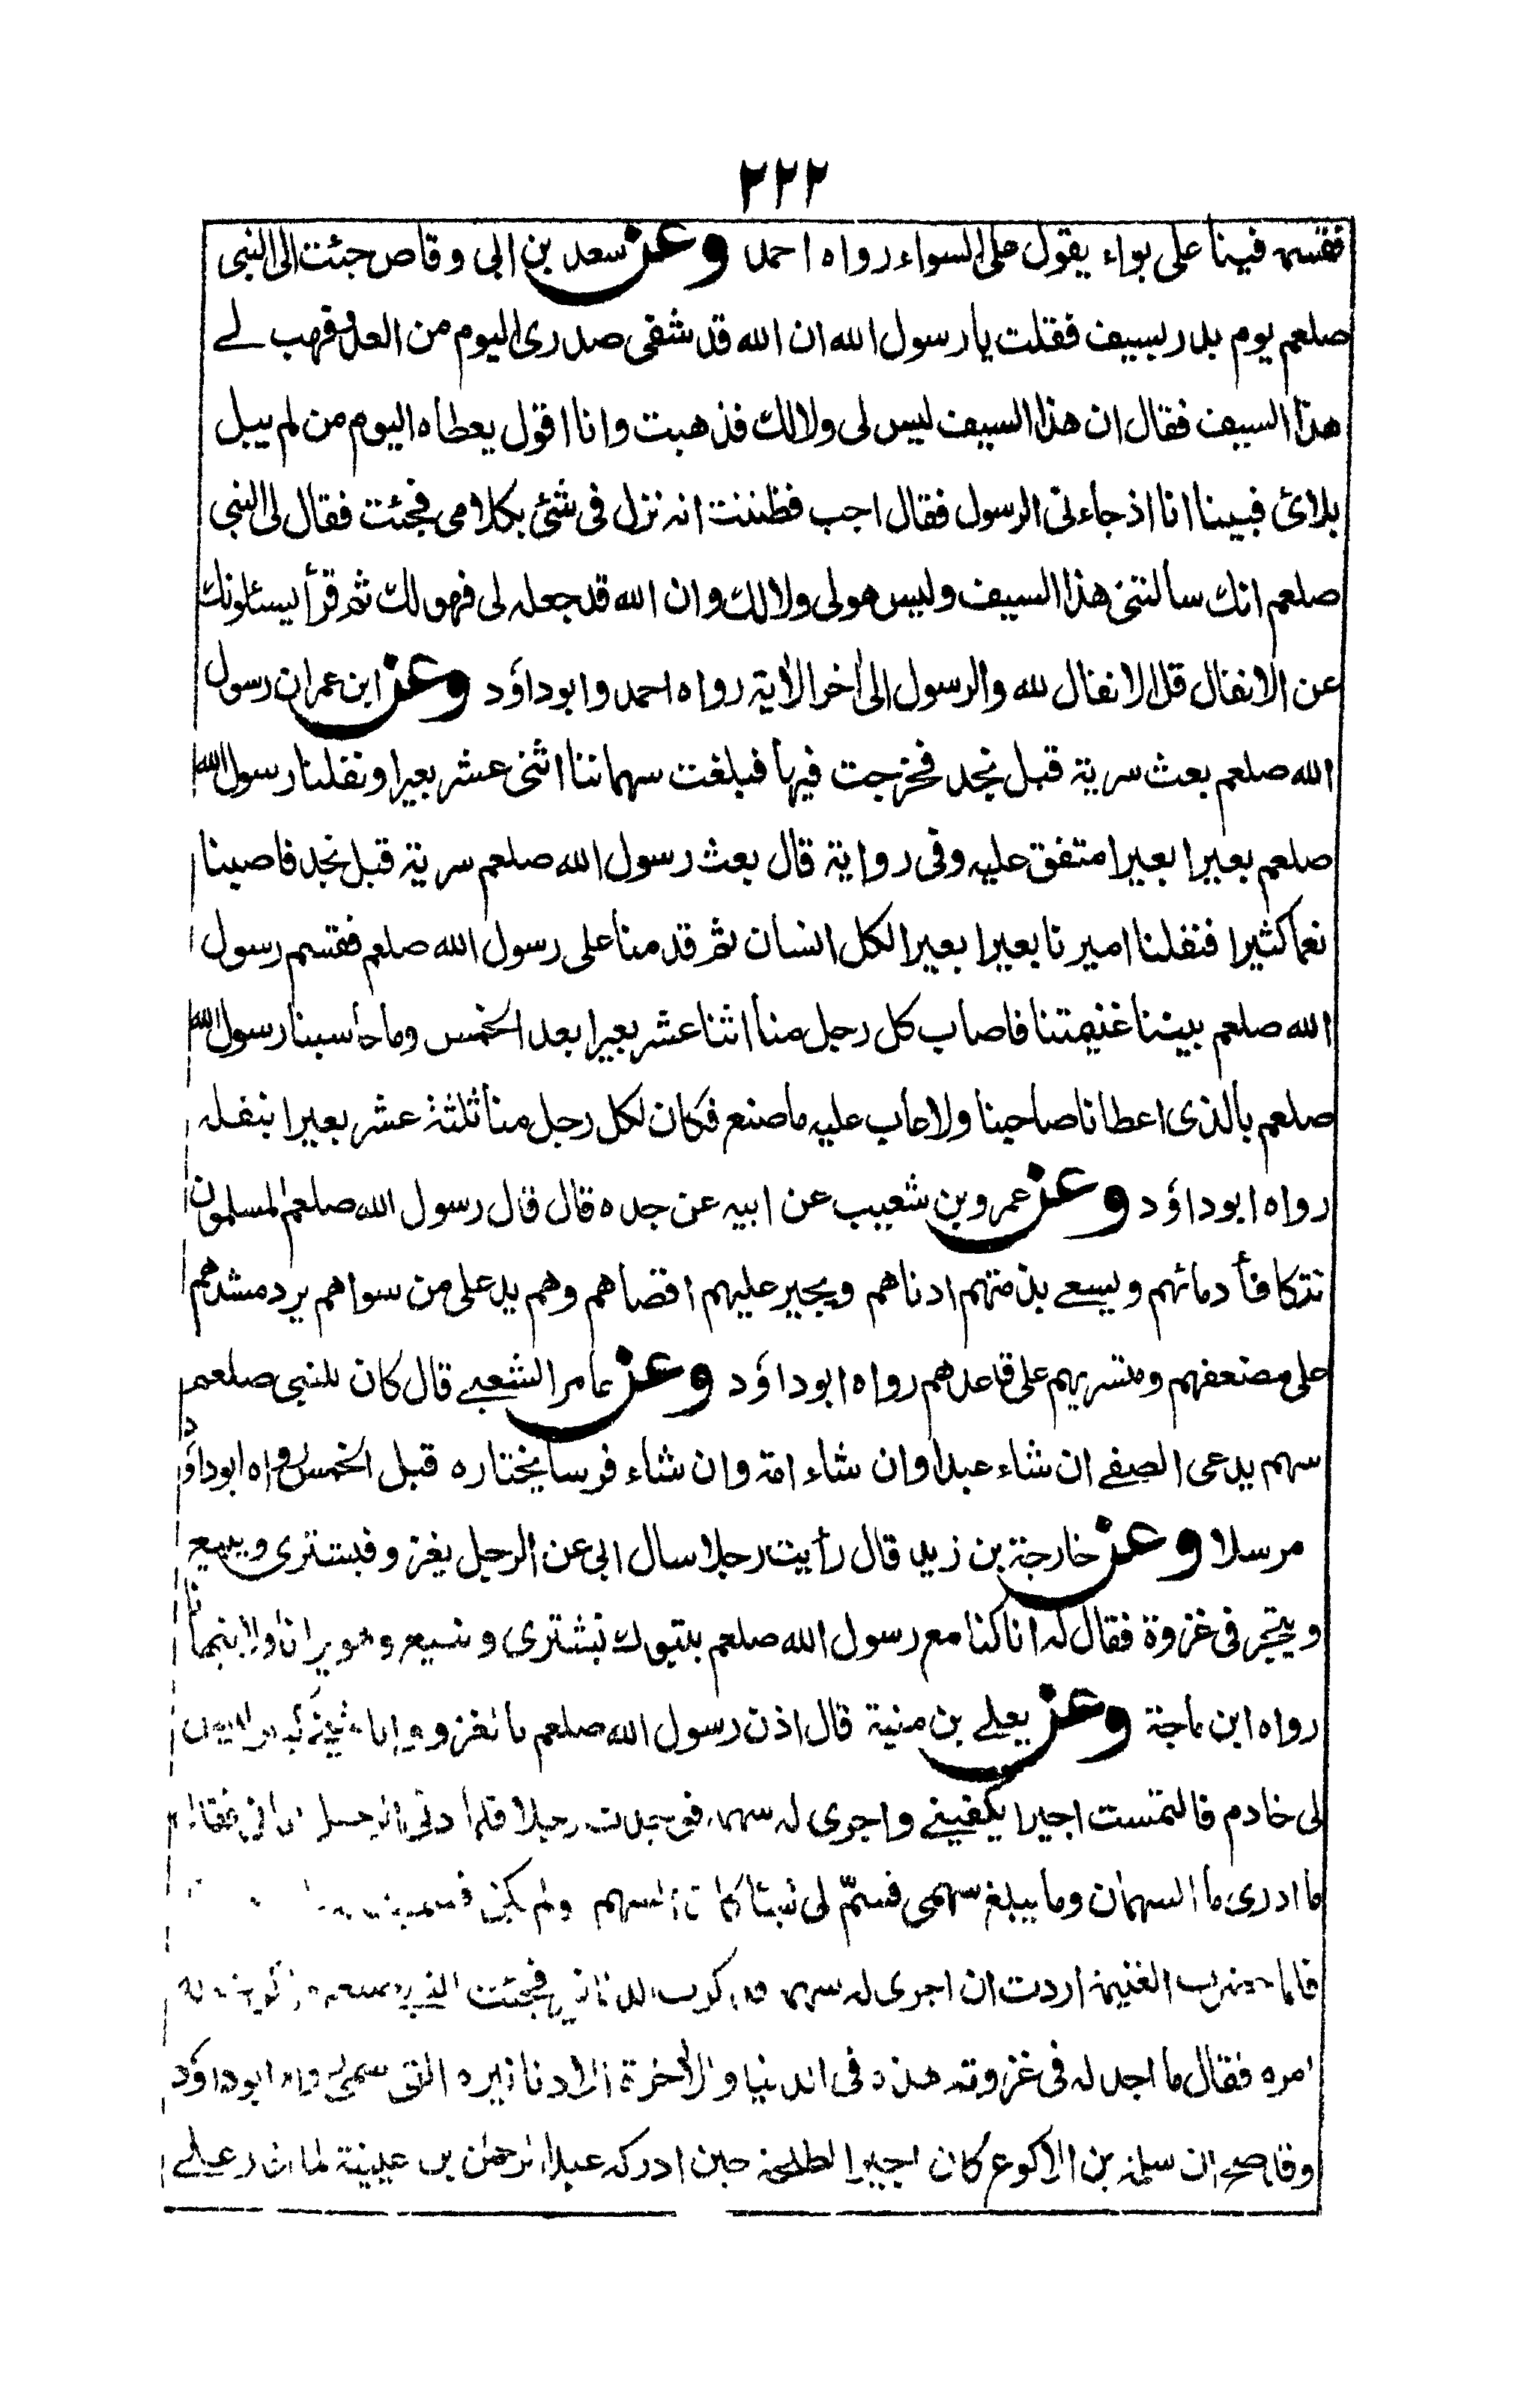 ٢٢٢
فقسمه فينا على بواء يقول على السواء رواه احمد وعن سعد بن ابى وقاص جئت الى النبى
صلعم يوم بدر بسيف فقلت يا رسول الله ان الله قد شفى صدرى اليوم من العدو فهب لے
هذا السيف فقال ان هذا السيف ليس لى ولا لك فذهبت وانا اقول يعطاه اليوم من لم يبل
بلائ فبينا انا اذ جاءنى الرسول فقال اجب فظننت انه نزل فى شئ بكلامى فجئت فقال لى النبى
صلعم انك سألتنى هذا السيف وليس هو لى ولا لك وان الله قد جعله لى فهو لك ثم قرأ يسئلونك
عن الانفال قل الانفال لله والرسول الى اٰخر الاٰية رواه احمد وابو داؤد وعن ابن عمر ان رسول
الله صلعم بعث سرية قبل نجد فخرجت فيها فبلغت سهماننا اثنى عشر بعيرا ونفلنا رسول الله
صلعم بعيرا بعيرا متفق عليه وفى رواية قال بعث رسول الله صلعم سرية قبل نجد فاصبنا
نعما كثيرا فنفلنا اميرنا بعيرا بعيرا لكل انسان ثم قدمنا على رسول الله صلعم فقسم رسول
الله صلعم بيننا غنيمتنا فاصاب كل رجل منا اثنا عشر بعيرا بعد الخمس وما حاسبنا رسول الله
صلعم بالذى اعطانا صاحبنا ولا عاب عليه ما صنع فكان لكل رجل منا ثلثة عشر بعيرا بنفله
رواه ابو داؤد وعن عمرو بن شعيب عن ابيه عن جده قال قال رسول الله صلعم المسلمون
تتكافأ دمائهم ويسعے بذمتهم ادناهم ويجير عليهم اقصاهم وهم يد على من سواهم يرد مشدهم
على مضعفهم ومتسريهم على قاعدهم رواه ابو داؤد وعن عامر الشعبے قال كان للنبى صلعم
سهم يدعى الصفے ان شاء عبدا وان شاء امة وان شاء فرسا يختاره قبل الخمس رواه ابو داؤد
مرسلا وعن خارجة بن زيد قال رأيت رجلا سال ابى عن الرجل يغزو فيشترى ويبيع
ويتجر فى غزوة فقال له انا كنا مع رسول الله صلعم بتبوك نشترى ونبيع وهو يرانا ولا ينهانا
رواه ابن ماجة وعن يعلے بن منية قال اذن رسول الله صلعم بالغزو وانا شيخ كبير ليس
لى خادم فالتمست اجيرا يكفينے واجرى له سهمه فوجدت رجلا فلما دنى الرحيل اتانى فقال
ما ادرى ما السهمان وما يبلغ سهمى فسمّ لى شيئا كان السهم ولم يكن فسميت
فلما حضرت الغنيمة اردت ان اجرى له سهمه فذكرت الدنانير فجئت النبى صلعم فذكرت له
امره فقال ما اجد له فى غزوته هذه فى الدنيا والاٰخرة الا دنانيره التى سمى رواه ابو داؤد
وقد صح ان سلمة بن الاكوع كان اجيرا لطلحة حين ادركه عبد الرحمٰن بن عيينة لما اغار على